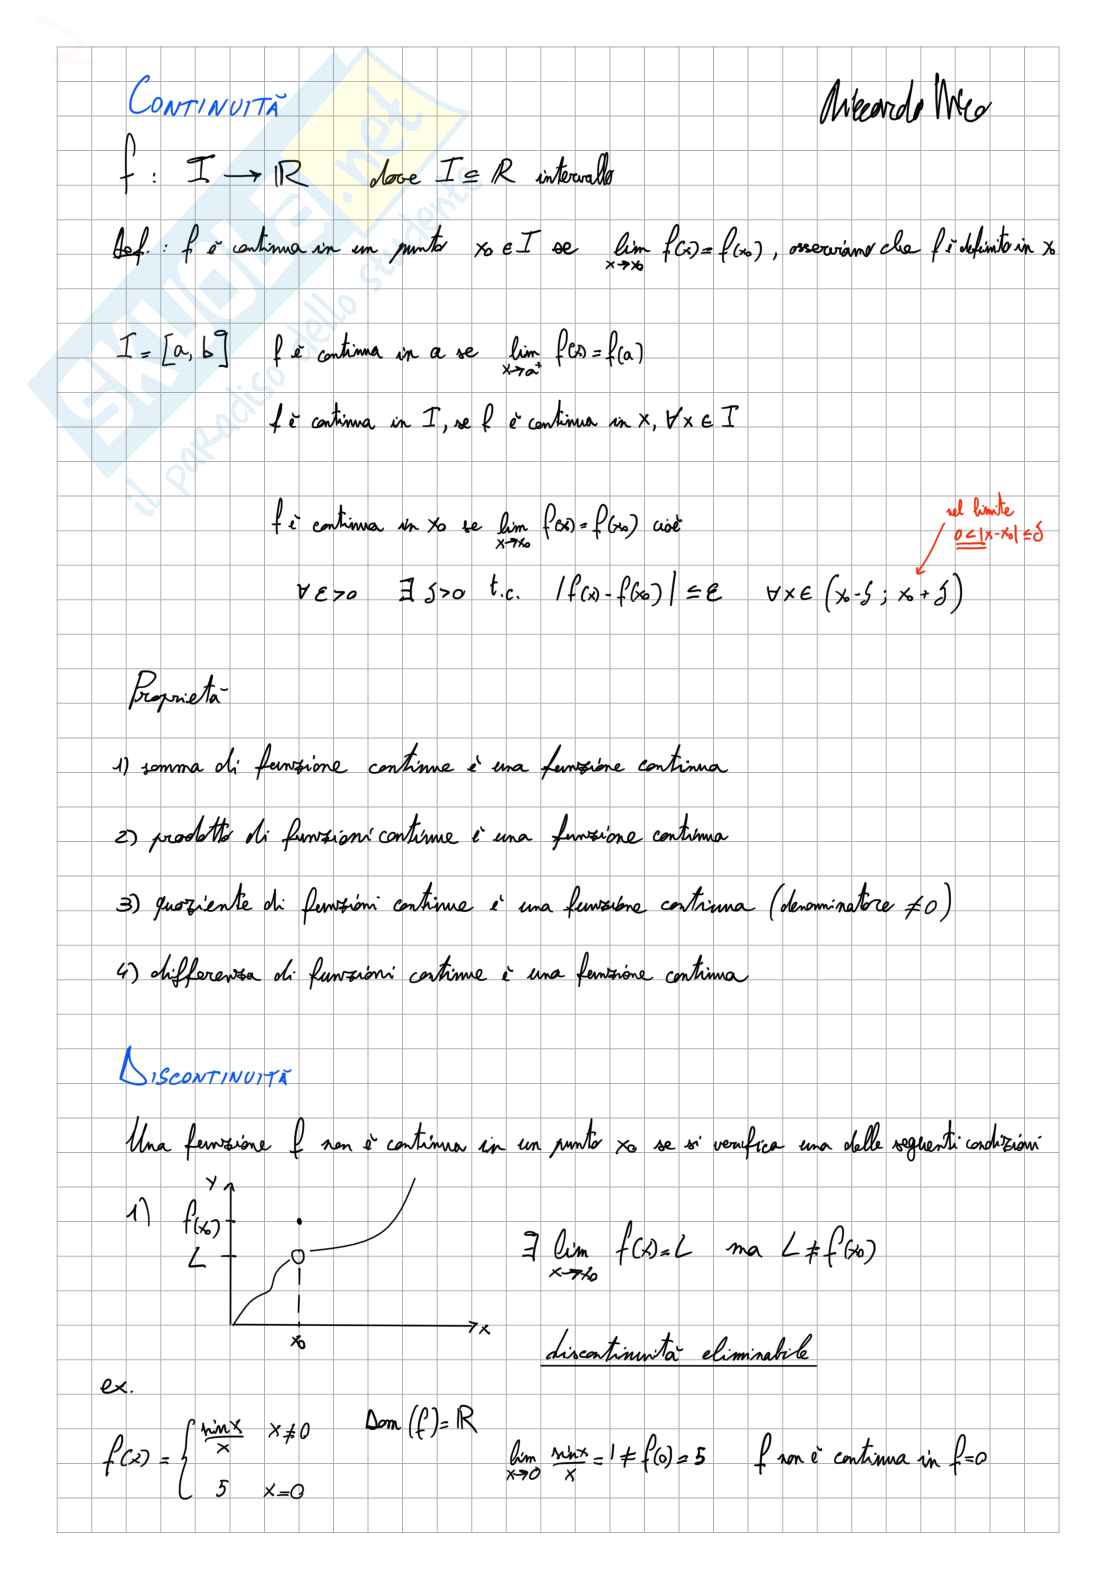 CONTINUITÀ
Riccardo Nico
f : I → ℝ dove I ⊆ ℝ intervallo
Def. : f è continua in un punto x₀ ∈ I se lim x→x₀ f(x) = f(x₀), osserviamo che f è definita in x₀
I = [a, b] f è continua in a se lim x→a⁺ f(x) = f(a)
f è continua in I, se f è continua in x, ∀x ∈ I
f è continua in x₀ se lim x→x₀ f(x) = f(x₀) cioè
nel limite
0 < |x - x₀| ≤ δ
∀ε > 0 ∃ δ > 0 t.c. |f(x) - f(x₀)| ≤ ε ∀x ∈ (x₀ - δ ; x₀ + δ)
Proprietà
1) somma di funzione continue è una funzione continua
2) prodotto di funzioni continue è una funzione continua
3) quoziente di funzioni continue è una funzione continua (denominatore ≠ 0)
4) differenza di funzioni continue è una funzione continua
DISCONTINUITÀ
Una funzione f non è continua in un punto x₀ se si verifica una delle seguenti condizioni
1)
y
f(x₀)
L
x₀
x
∃ lim x→x₀ f(x) = L ma L ≠ f(x₀)
discontinuità eliminabile
ex.
f(x) = { sin x / x x ≠ 0
5 x = 0
Dom (f) = ℝ
lim x→0 sin x / x = 1 ≠ f(0) = 5 f non è continua in f = 0
SKUOLA.net
il paradiso dello studente